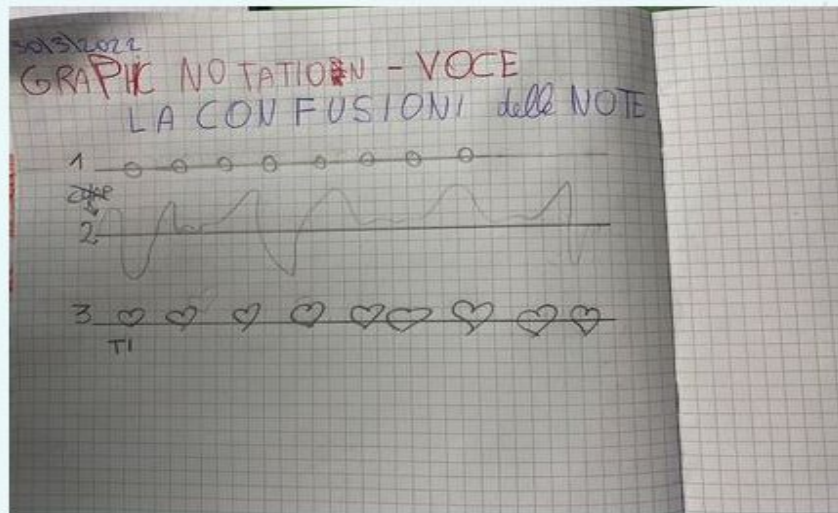 30/3/2022
GRAPHIC NOTATION - VOCE
LA CONFUSIONI delle NOTE
1
2
3
TI